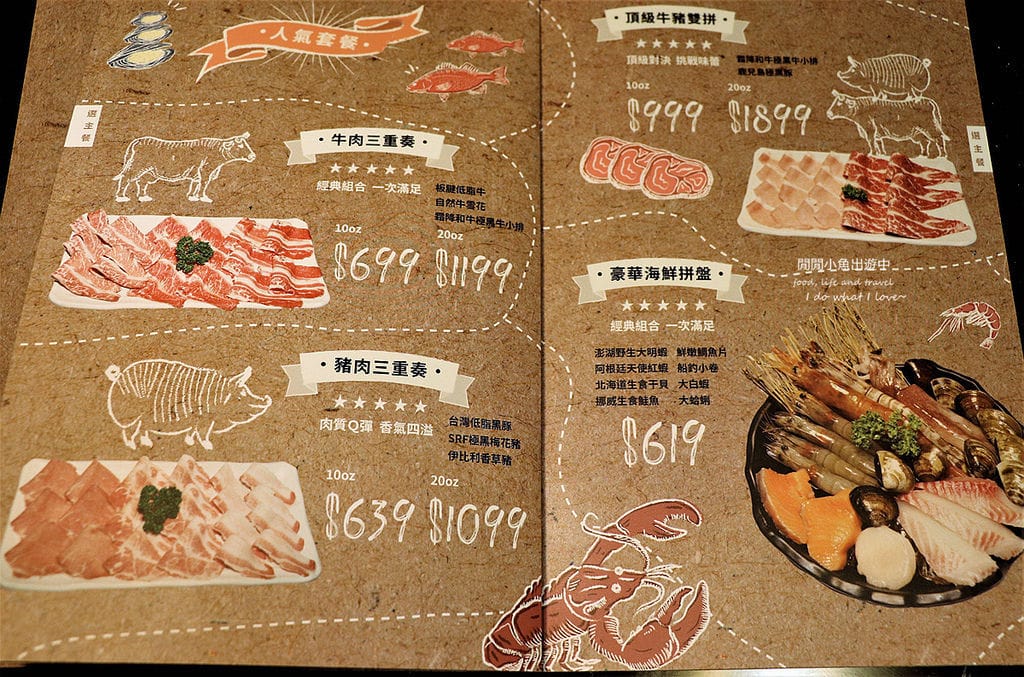 人氣套餐
選主餐
牛肉三重奏
經典組合 一次滿足
板腱低脂牛
自然牛雪花
霜降和牛極黑牛小排
10oz 20oz
$699 $1199
豬肉三重奏
肉質Q彈 香氣四溢
台灣低脂黑豚
SRF極黑梅花豬
伊比利香草豬
10oz 20oz
$639 $1099
頂級牛豬雙拼
頂級對決 挑戰味蕾
霜降和牛極黑牛小排
鹿兒島極黑豚
10oz 20oz
$999 $1899
選主餐
豪華海鮮拼盤
經典組合 一次滿足
澎湖野生大明蝦 鮮嫩鯛魚片
阿根廷天使紅蝦 船釣小卷
北海道生食干貝 大白蝦
挪威生食鮭魚 大蛤蜊
$619
閒閒小魚出遊中
food, life and travel
I do what I love~